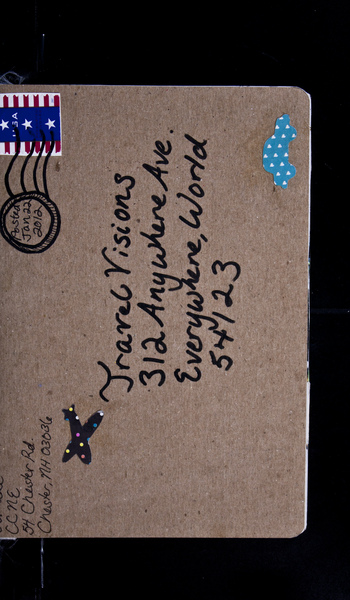 USA
Posted
Jan. 22
2012
Travel Visions
312 Anywhere Ave.
Everywhere, World
54123
CCNE
54 Chester Rd.
Chester, NH 03036